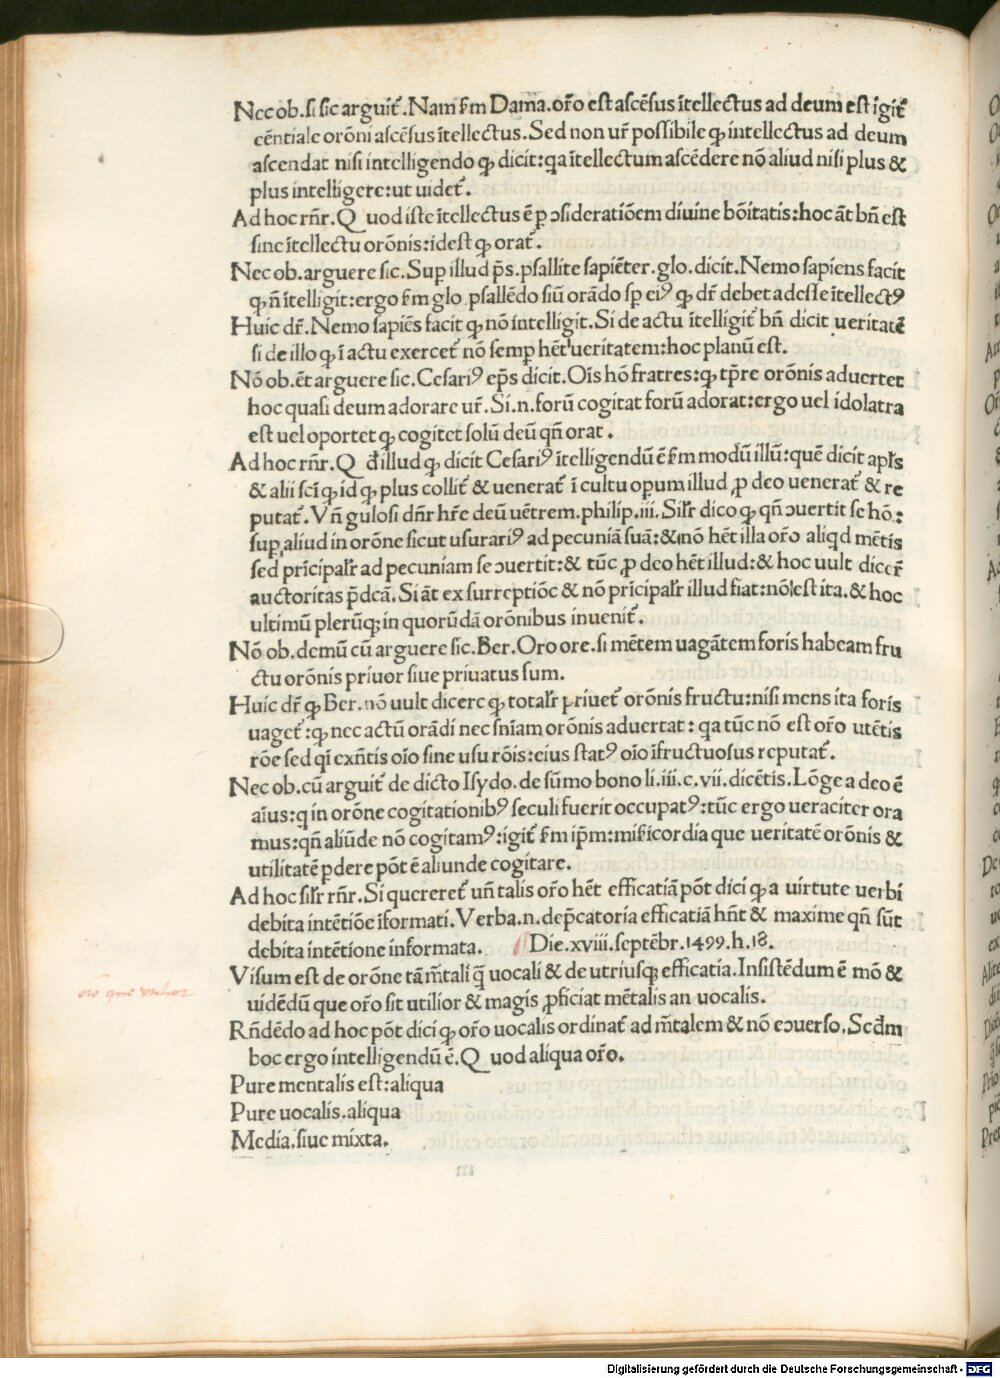 Nec ob. si sic arguit᷑. Nam ẜm Dama. or̄o est ascēsus ītellectus ad deum est īgit᷑
cēntiale orōni ascēsus ītellectus. Sed non ur̄ possibile ꝙ intellectus ad deum
ascendat nisi intelligendo ꝙ dicit: qa ītellectum ascēdere nō aliud nisi plus &
plus intelligere: ut uidet᷑.
Ad hoc rn̄r. Q uod iste ītellectus ē p ɔsideratiōem diuine bōitatis: hoc āt bn̄ est
sine ītellectu orōnis: idest ꝙ orat᷑.
Nec ob. arguere sic. Sup illud ps̄. psallite sapiēter. glo. dicit. Nemo sapiens facit
ꝙ n̄ ītelligit: ergo ẜm glo. psallēdo siū orādo sp ei⁹ ꝙ dr̄ debet adesse ītellect⁹
Huic dr̄. Nemo sapiēs facit ꝙ nō intelligit. Si de actu ītelligit᷑ bn̄ dicit ueritatē
si de illo ꝙ ī actu exercet᷑ nō semp hēt ueritatem: hoc planū est.
Nō ob. ēt arguere sic. Cesari⁹ ep̄s dicit. Oīs hō fratres: ꝙ tp̄re orōnis aduertet
hoc quasi deum adorare ur̄. Si. n. forū cogitat forū adorat: ergo uel idolatra
est uel oportet ꝙ cogitet solū deū qn̄ orat.
Ad hoc rn̄r. Q đ illud ꝙ dicit Cesari⁹ ītelligendū ē ẜm modū illū: quē dicit apl̄s
& alii scī ꝙ id ꝙ plus collit᷑ & uenerat᷑ ī cultu opum illud ꝓ deo uenerat᷑ & re
putat᷑. Vn̄ gulosi dn̄r hr̄e deū uētrem. philip. iii. Sil̄r dico ꝙ qn̄ ɔuertit se hō:
sup aliud in orōne sicut usurari⁹ ad pecuniā suā: & nō hēt illa or̄o aliqd mētis
sed prīcipal̄r ad pecuniam se ɔuertit: & tūc ꝓ deo hēt illud: & hoc uult dicer̄
auctoritas p̄dcā. Si āt ex surreptiōe & nō prīcipal̄r illud fiat: nō est ita. & hoc
ultimū plerūqꝫ in quorūdā orōnibus inuenit᷑.
Nō ob. demū cū arguere sic. Ber. Oro ore. si mētem uagātem foris habeam fru
ctu orōnis priuor siue priuatus sum.
Huic dr̄ ꝙ Ber. nō uult dicere ꝙ total̄r priuet᷑ orōnis fructu: nisi mens ita foris
uaget᷑: ꝙ nec actū orādi nec sn̄iam orōnis aduertat: qa tūc nō est or̄o utētis
rōe sed qi exn̄tis oīo sine usu rōis: eius stat⁹ oīo īfructuosus reputat᷑.
Nec ob. cū arguit᷑ de dicto Isydo. de sūmo bono li. iii. c. vii. dicētis. Lōge a deo ē
aīus: q in orōne cogitationib⁹ seculi fuerit occupat⁹: tūc ergo ueraciter ora
mus: qn̄ aliūde nō cogitam⁹: igit᷑ ẜm ip̄m: mīẜicordia que ueritatē orōnis &
utilitatē pdere pōt ē aliunde cogitare.
Ad hoc sil̄r rn̄r. Si quereret᷑ un̄ talis or̄o hēt efficatiā pōt dici ꝙ a uirtute uerbi
debita intētiōe īformati. Verba. n. dep̄catoria efficatiā hn̄t & maxime qn̄ sūt
debita intētione informata. Die. xviii. septēbr. 1499. h. 18.
Visum est de orōne tā m̄tali q̄ uocali & de utriusqꝫ efficatia. Insistēdum ē mō &
uidēdū que or̄o sit utilior & magis ꝓficiat mētalis an uocalis.
Rn̄dēdo ad hoc pōt dici ꝙ or̄o uocalis ordinat᷑ ad m̄talem & nō eɔuerso. Scđm
hoc ergo intelligendū ē. Q uod aliqua or̄o.
Pure mentalis est: aliqua
Pure uocalis. aliqua
Media. siue mixta.
oro que utilior
Digitalisierung gefördert durch die Deutsche Forschungsgemeinschaft - DFG